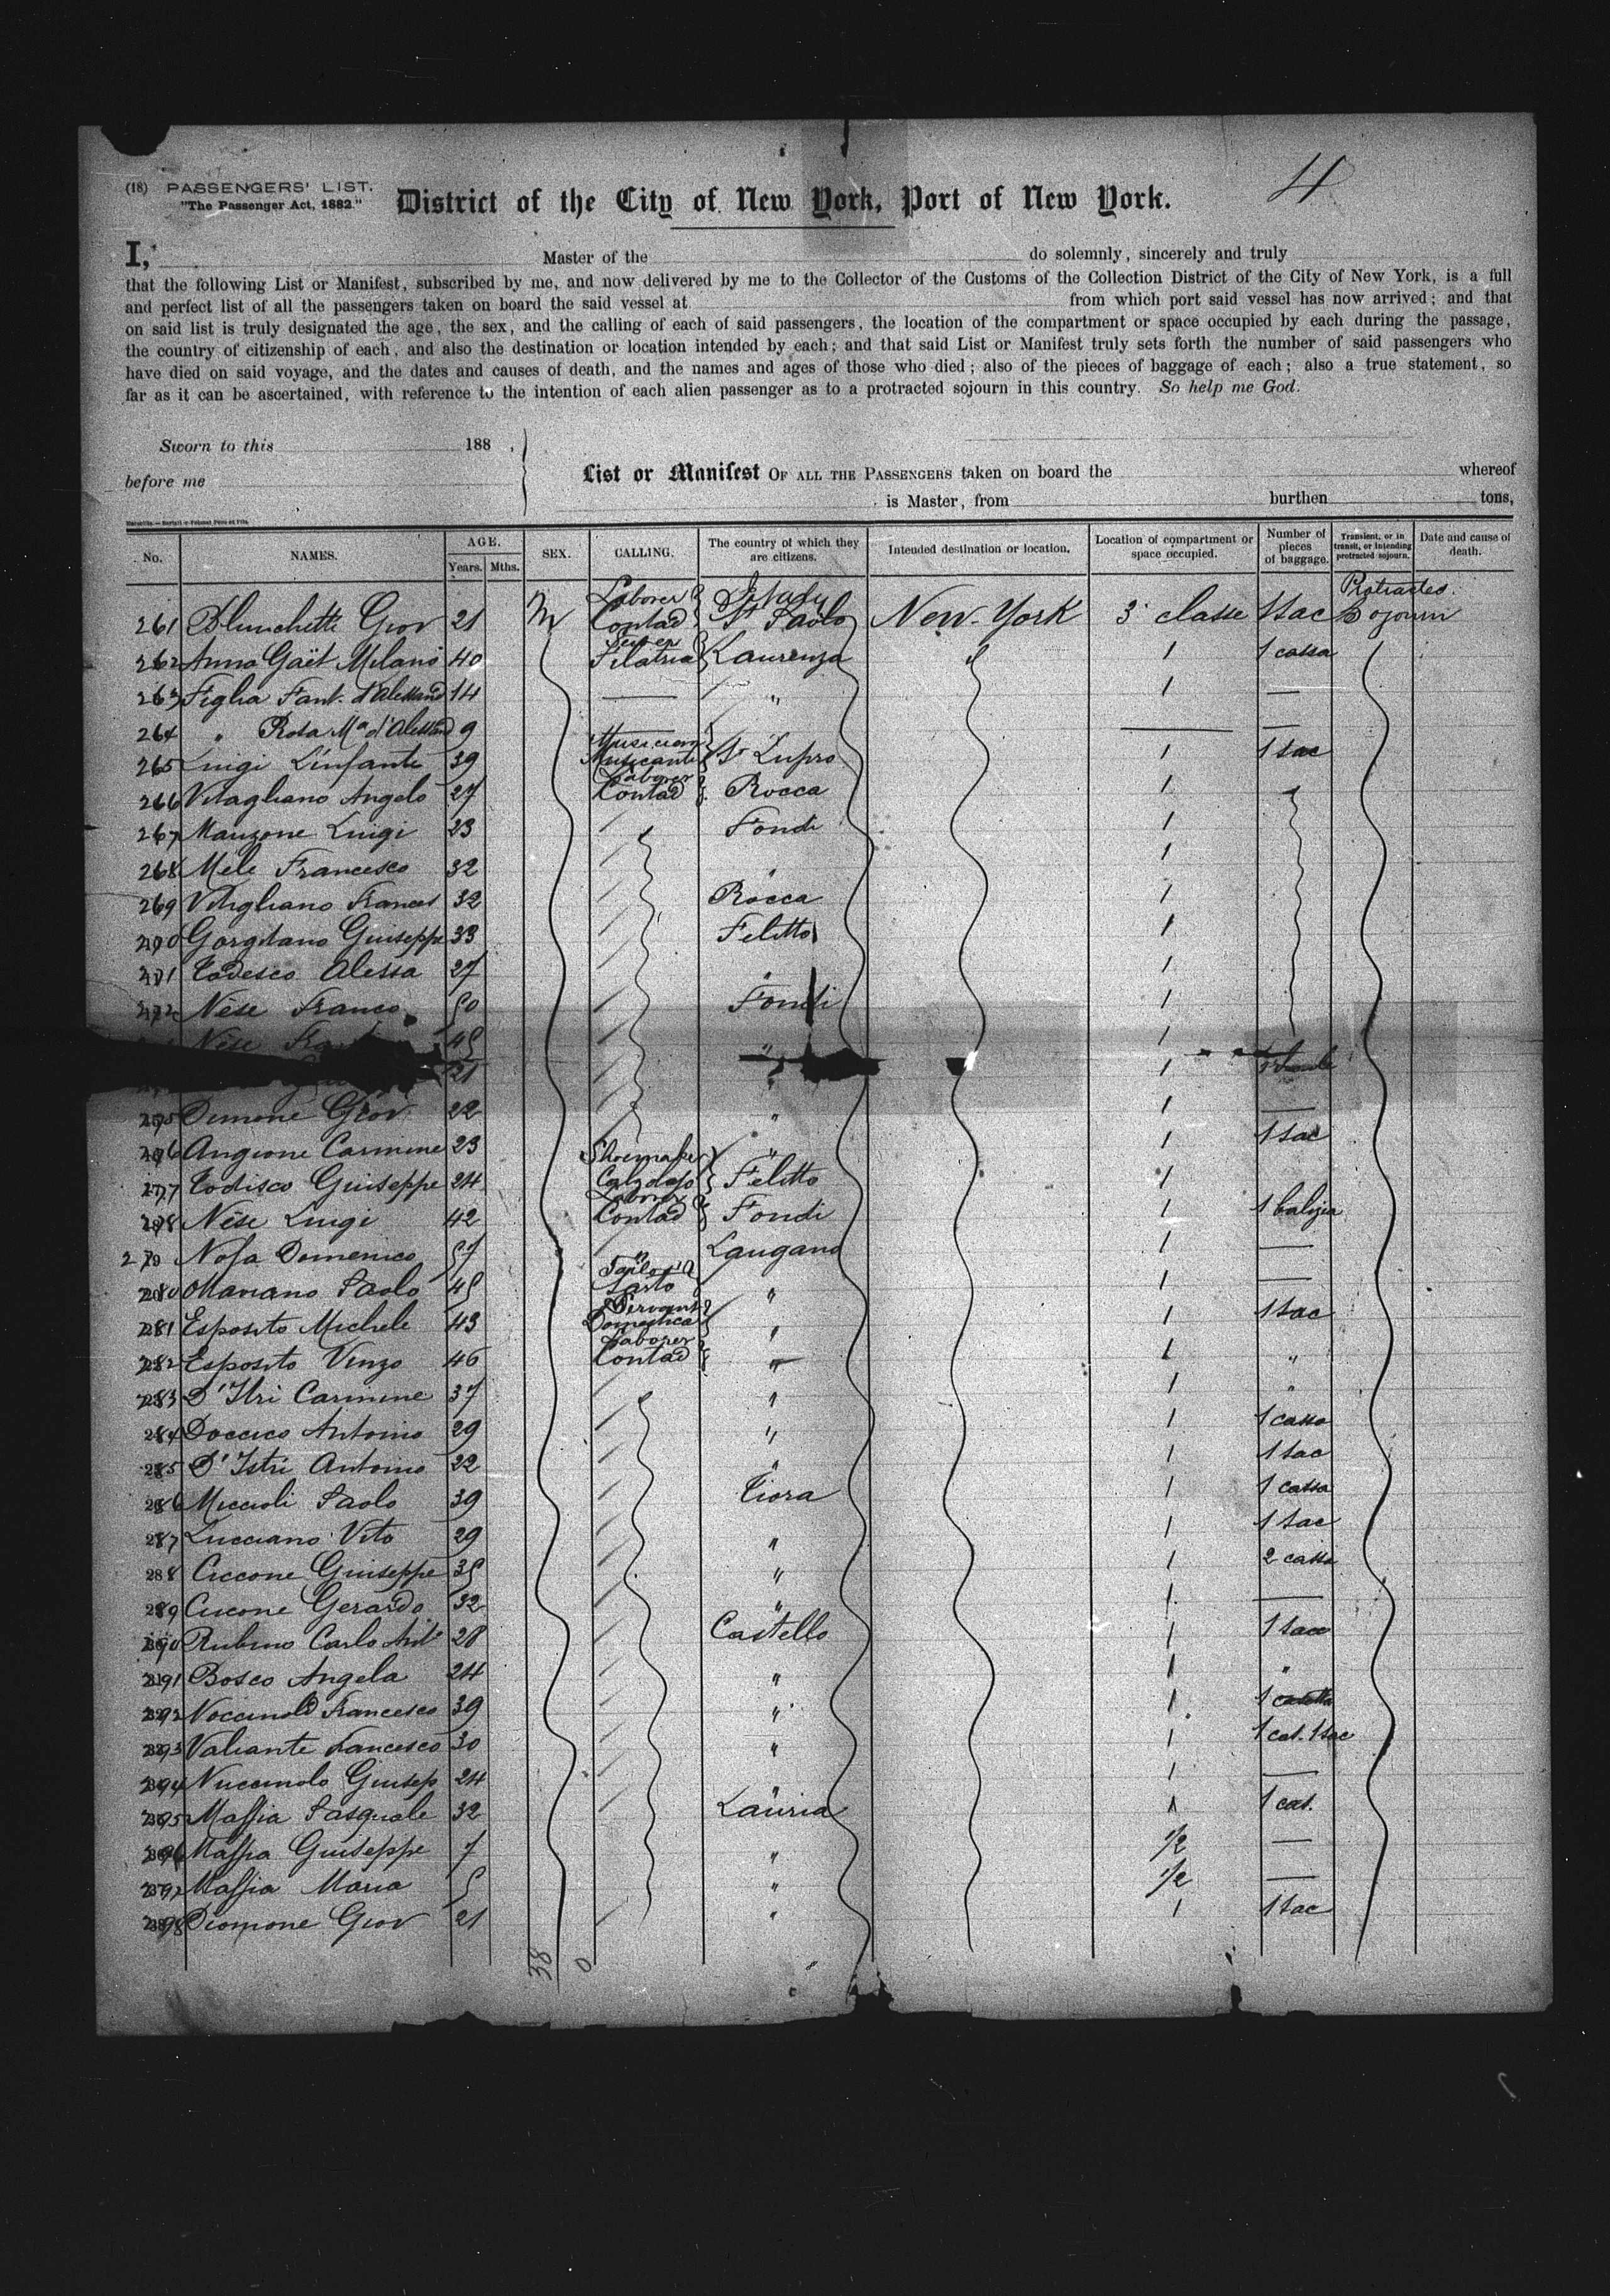 (18) PASSENGERS' LIST.
"The Passenger Act, 1882."
District of the City of New York, Port of New York.
4
I, Master of the do solemnly, sincerely and truly
that the following List or Manifest, subscribed by me, and now delivered by me to the Collector of the Customs of the Collection District of the City of New York, is a full
and perfect list of all the passengers taken on board the said vessel at from which port said vessel has now arrived; and that
on said list is truly designated the age, the sex, and the calling of each of said passengers, the location of the compartment or space occupied by each during the passage,
the country of citizenship of each, and also the destination or location intended by each; and that said List or Manifest truly sets forth the number of said passengers who
have died on said voyage, and the dates and causes of death, and the names and ages of those who died; also of the pieces of baggage of each; also a true statement, so
far as it can be ascertained, with reference to the intention of each alien passenger as to a protracted sojourn in this country. So help me God.
Sworn to this 188 ,
before me
List or Manifest OF ALL THE PASSENGERS taken on board the whereof
is Master, from burthen tons,
No. NAMES. AGE. Years. Mths. SEX. CALLING. The country of which they are citizens. Intended destination or location. Location of compartment or space occupied. Number of pieces of baggage. Transient, or in transit, or intending protracted sojourn. Date and cause of death.
261 Blunchetti Giov 21 M Laborer Contad St Paolo New-York 3 classe 1 sac Sojourn
262 Anna Gaët Milano 40 Filatria Laurenza 1 1 cassa
263 Figlia Fant. d'Alessand 14 — " 1 —
264 " Rosa Ma d'Alessand 9 — —
265 Luigi L'infante 39 Musician Musicante St Lupro 1 1 sac
266 Vitagliano Angelo 27 Laborer Contad Rocca 1
267 Manzone Luigi 23 Fondi 1
268 Mele Francesco 32 " 1
269 Vitigliano Frances 32 Rocca 1
270 Gorgitano Giuseppe 33 Felitto 1
271 Todesco Alessa 27 " 1
272 Nése Franco 50 Fondi 1
Nése 45 " 1
21 " 1
275 Dimone Giov 22 " 1 —
276 Angione Carmine 23 " 1 1 sac
277 Todisco Giuseppe 24 Shoemaker Calzolajo Felitto 1
278 Nése Luigi 42 Laborer Contad Fondi 1 1 balizia
279 Nosa Domenico 57 " Laugano 1 —
280 Mariano Paolo 45 Tailor Sarto " 1 —
281 Esposito Michele 43 Servant Domestica " 1 1 sac
282 Esposito Vinzo 46 Laborer Contad " 1 "
283 D'Itri Carmine 37 " 1 "
284 Doccico Antonio 29 " 1 1 cassa
285 D'Istri Antonio 22 " 1 1 sac
286 Miccioli Paolo 39 Tiora 1 1 cassa
287 Lucciano Vito 29 " 1 1 sac
288 Ciccone Giuseppe 35 " 1 2 cassa
289 Cicone Gerardo 32 " 1 —
290 Rubino Carlo Anto 28 Castello 1 1 sac
291 Bosco Angela 24 " 1 "
292 Francesco 39 " 1 1
293 Valiante Francesco 30 " 1 1 cas. 1 sac
294 Nuccinolo Giusep 24 " 1 —
295 Massia Pasquale 32 Lauria 1 1 cas.
296 Massia Giuseppe 7 " 1/2 —
297 Massia Maria 5 " 1/2 —
298 Diomone Giov 21 " 1 1 sac
38 0